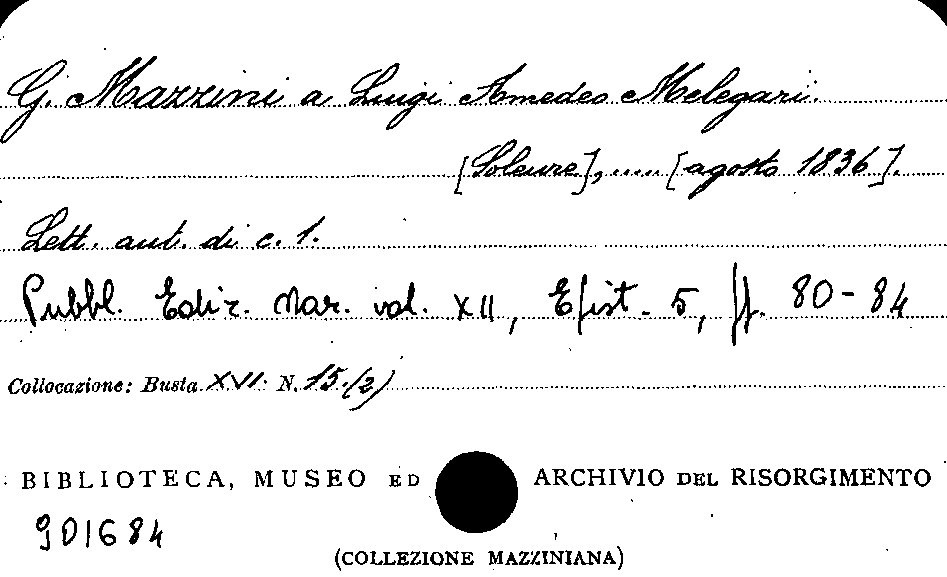 G. Mazzini a Luigi Amedeo Melegari.
[Soleure], ..... [agosto 1836].
Lett. aut. di c. 1.
Pubbl. Ediz. Naz. vol. XII, Epist. 5, pp. 80-84
Collocazione: Busta XVI. N. 15.(2)
BIBLIOTECA, MUSEO ED ARCHIVIO DEL RISORGIMENTO
901684
(COLLEZIONE MAZZINIANA)